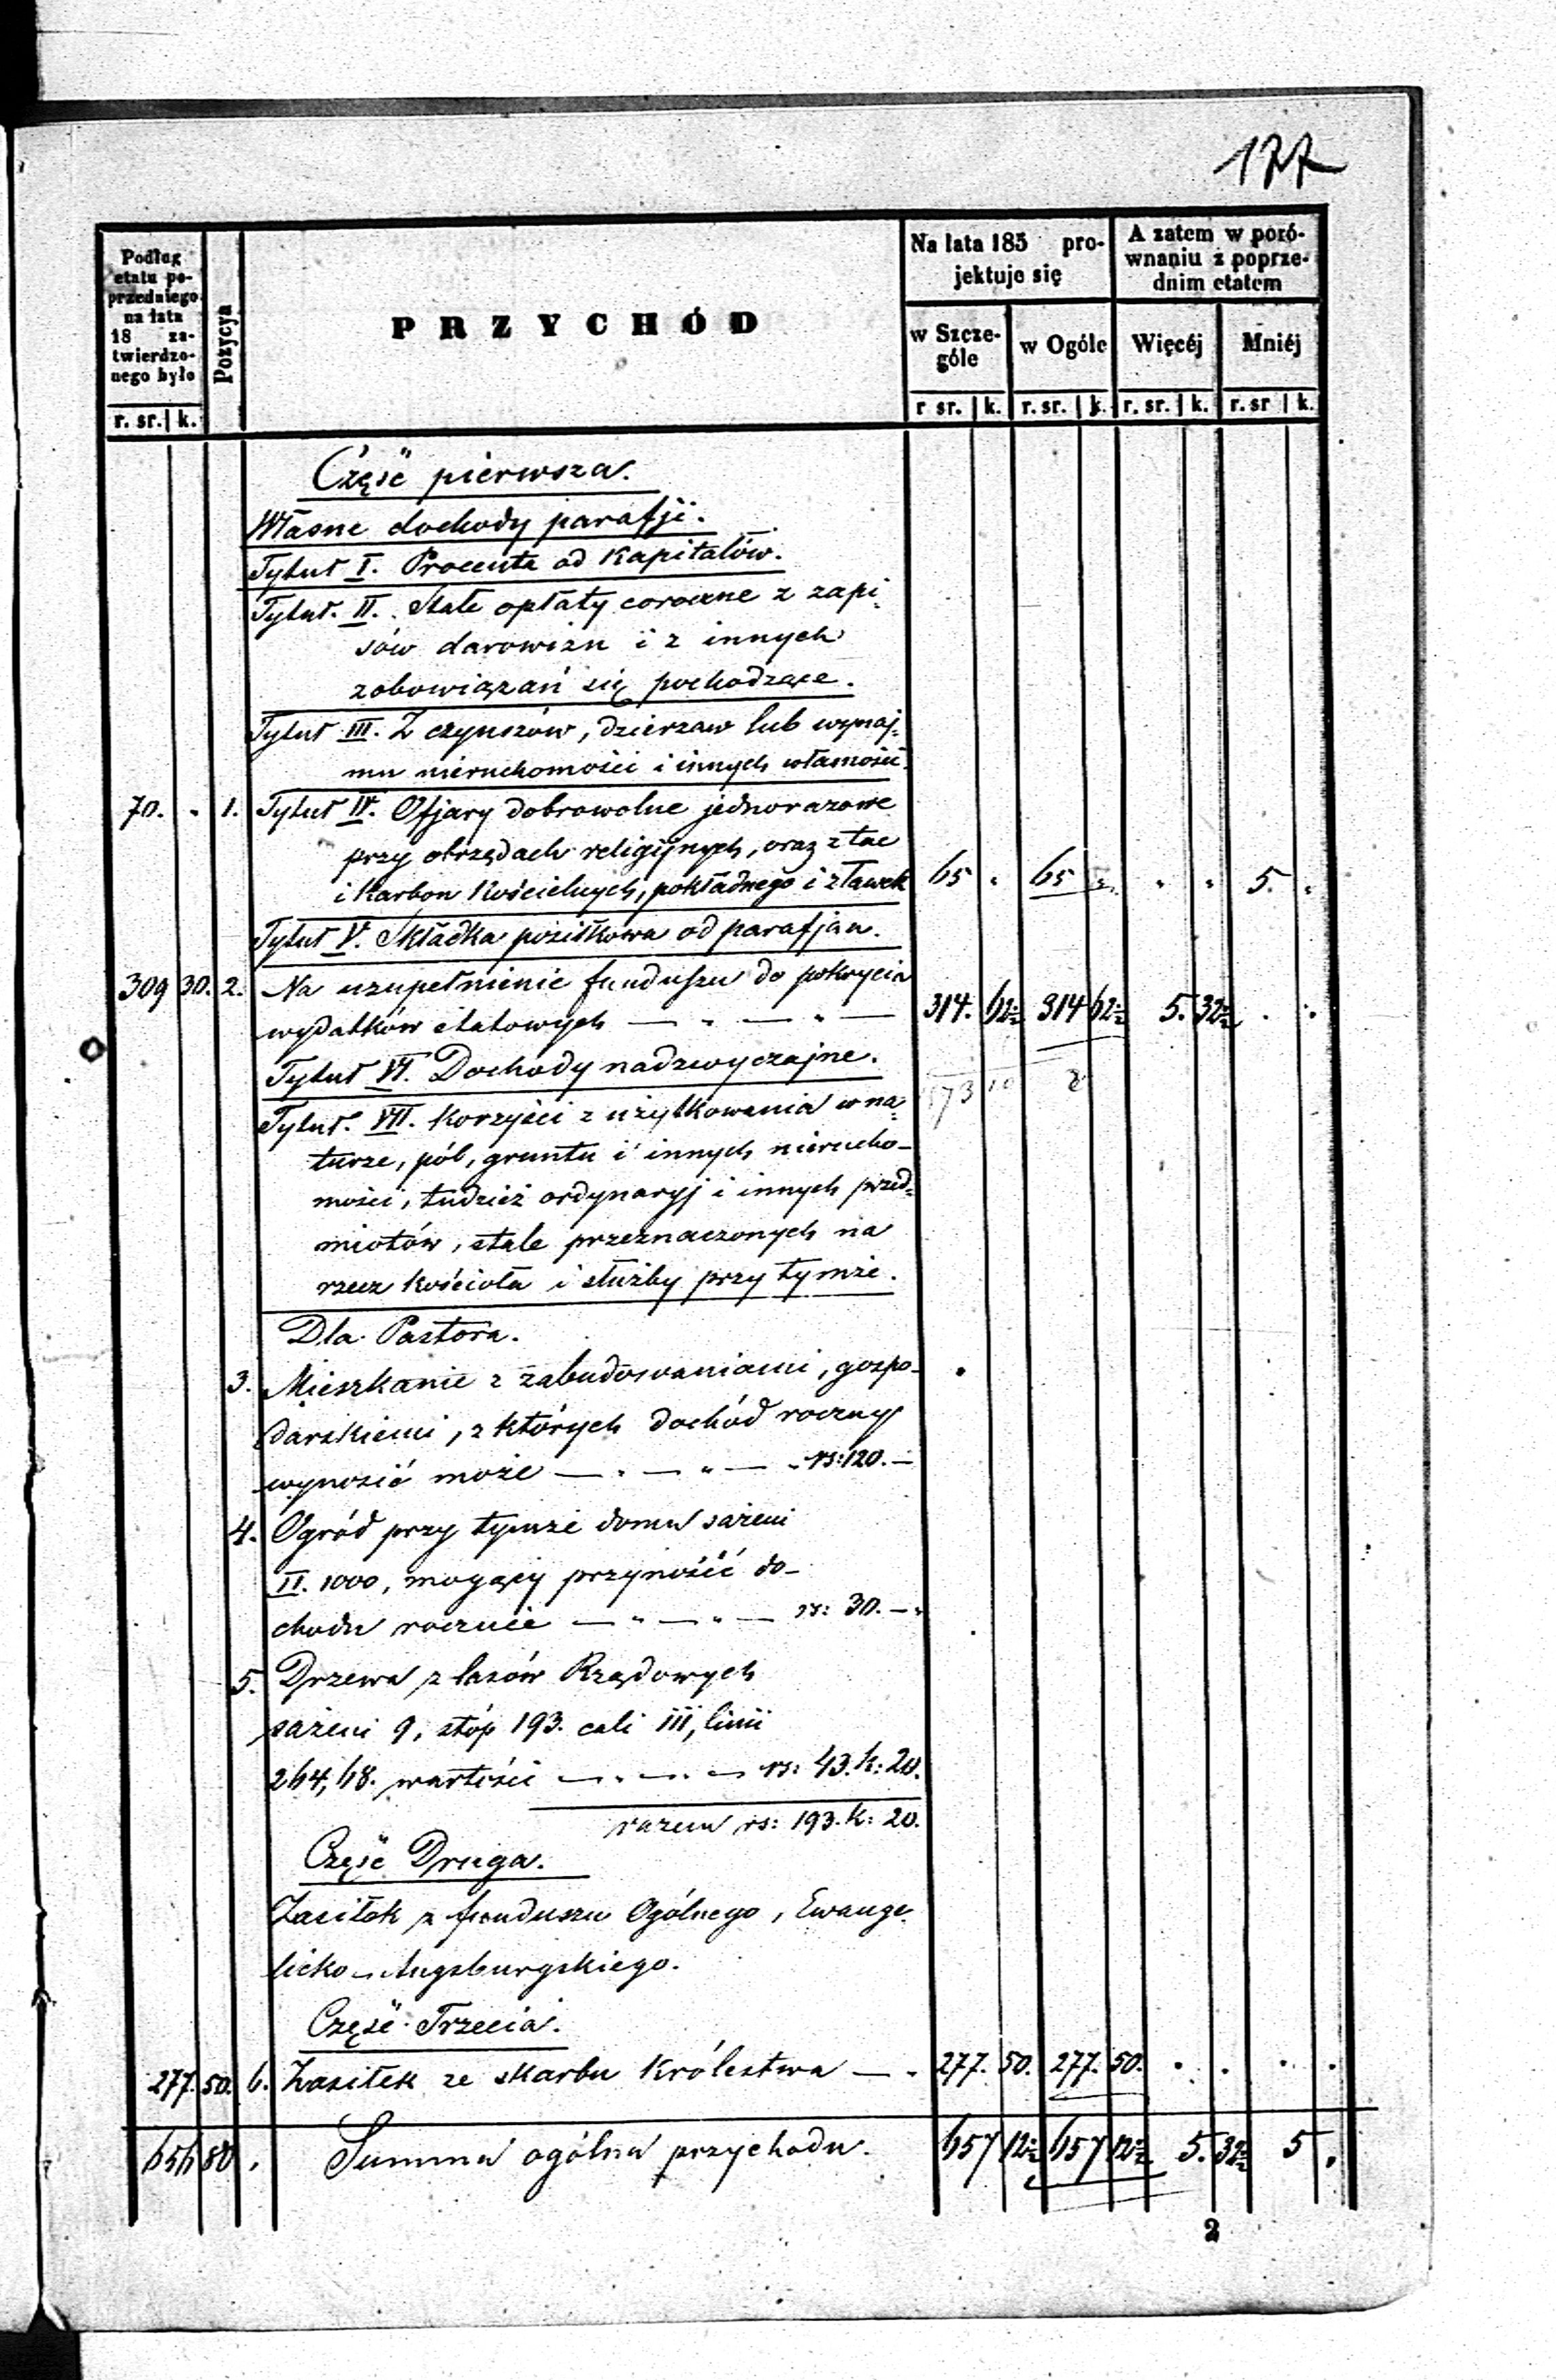 177
Podług etatu po-
przedniego na lata
18 za-
twierdzo-
nego było
Pozycya
PRZYCHÓD
Na lata 185 pro-
jektuje się
A zatem w poró-
wnaniu z poprze-
dnim etatem
w Szcze-
góle
w Ogóle
Więcéj
Mniéj
r. sr. k.
r sr. k. r. sr. k. r. sr. k. r. sr k.
Część pierwsza.
Własne dochody parafji.
Tytuł I. Procenta od Kapitałów.
Tytuł. II. Stałe opłaty coroczne z zapi-
sów darowizn i z innych
zobowiązań się pochodzące.
Tytuł III. Z czynszów, dzierzaw lub wynaj-
mu nieruchomości i innych własność.
70. " 1. Tytuł IV. Ofjary dobrowolne jednorazowe
przy obrzędach religijnych, oraz z tac
i Karbon Kościelnych, pokładnego i z ławek 65 " 65 " " " 5. "
Tytuł V. Składka posiłkowa od parafjan.
309 30. 2. Na uzupełnienie funduszu do pokrycia
wydatków etatowych — " — " — 314. 62½ 314 62½ 5. 32½ . .
Tytuł VI. Dochody nadzwyczajne.
Tytuł. VII. Korzyści z użytkowania w na-
turze, pól, gruntu i innych nierucho-
mości, tudzież ordynaryj i innych przed-
miotów, stale przeznaczonych na
rzecz kościoła i służby przy tymże.
Dla Pastora.
3. Mieszkanie z zabudowaniami, gospo-
darskiemi, z których dochód roczny
wynosić może — " — " — " rs: 120. —
4. Ogród przy tymże domu sażeni
II. 1000, mogący przynosić do-
chodu rocznie — " — " — rs: 30. — "
5. Drzewa z lasów Rządowych
sażeni 9, stóp 193. cali III, linii
264,68. wartości — " — " — rs: 43. k: 20.
razem rs: 193. k: 20.
Część Druga.
Zasiłok z funduszu Ogólnego, Ewange-
licko-Augsburgskiego.
Część Trzecia.
277. 50. 6. Zasiłek ze skarbu Królestwa — " 277. 50. 277. 50. . . . .
656 80 . Summa ogólna przychodu. 657 12½ 657 12½ 5. 32½ 5 .
2